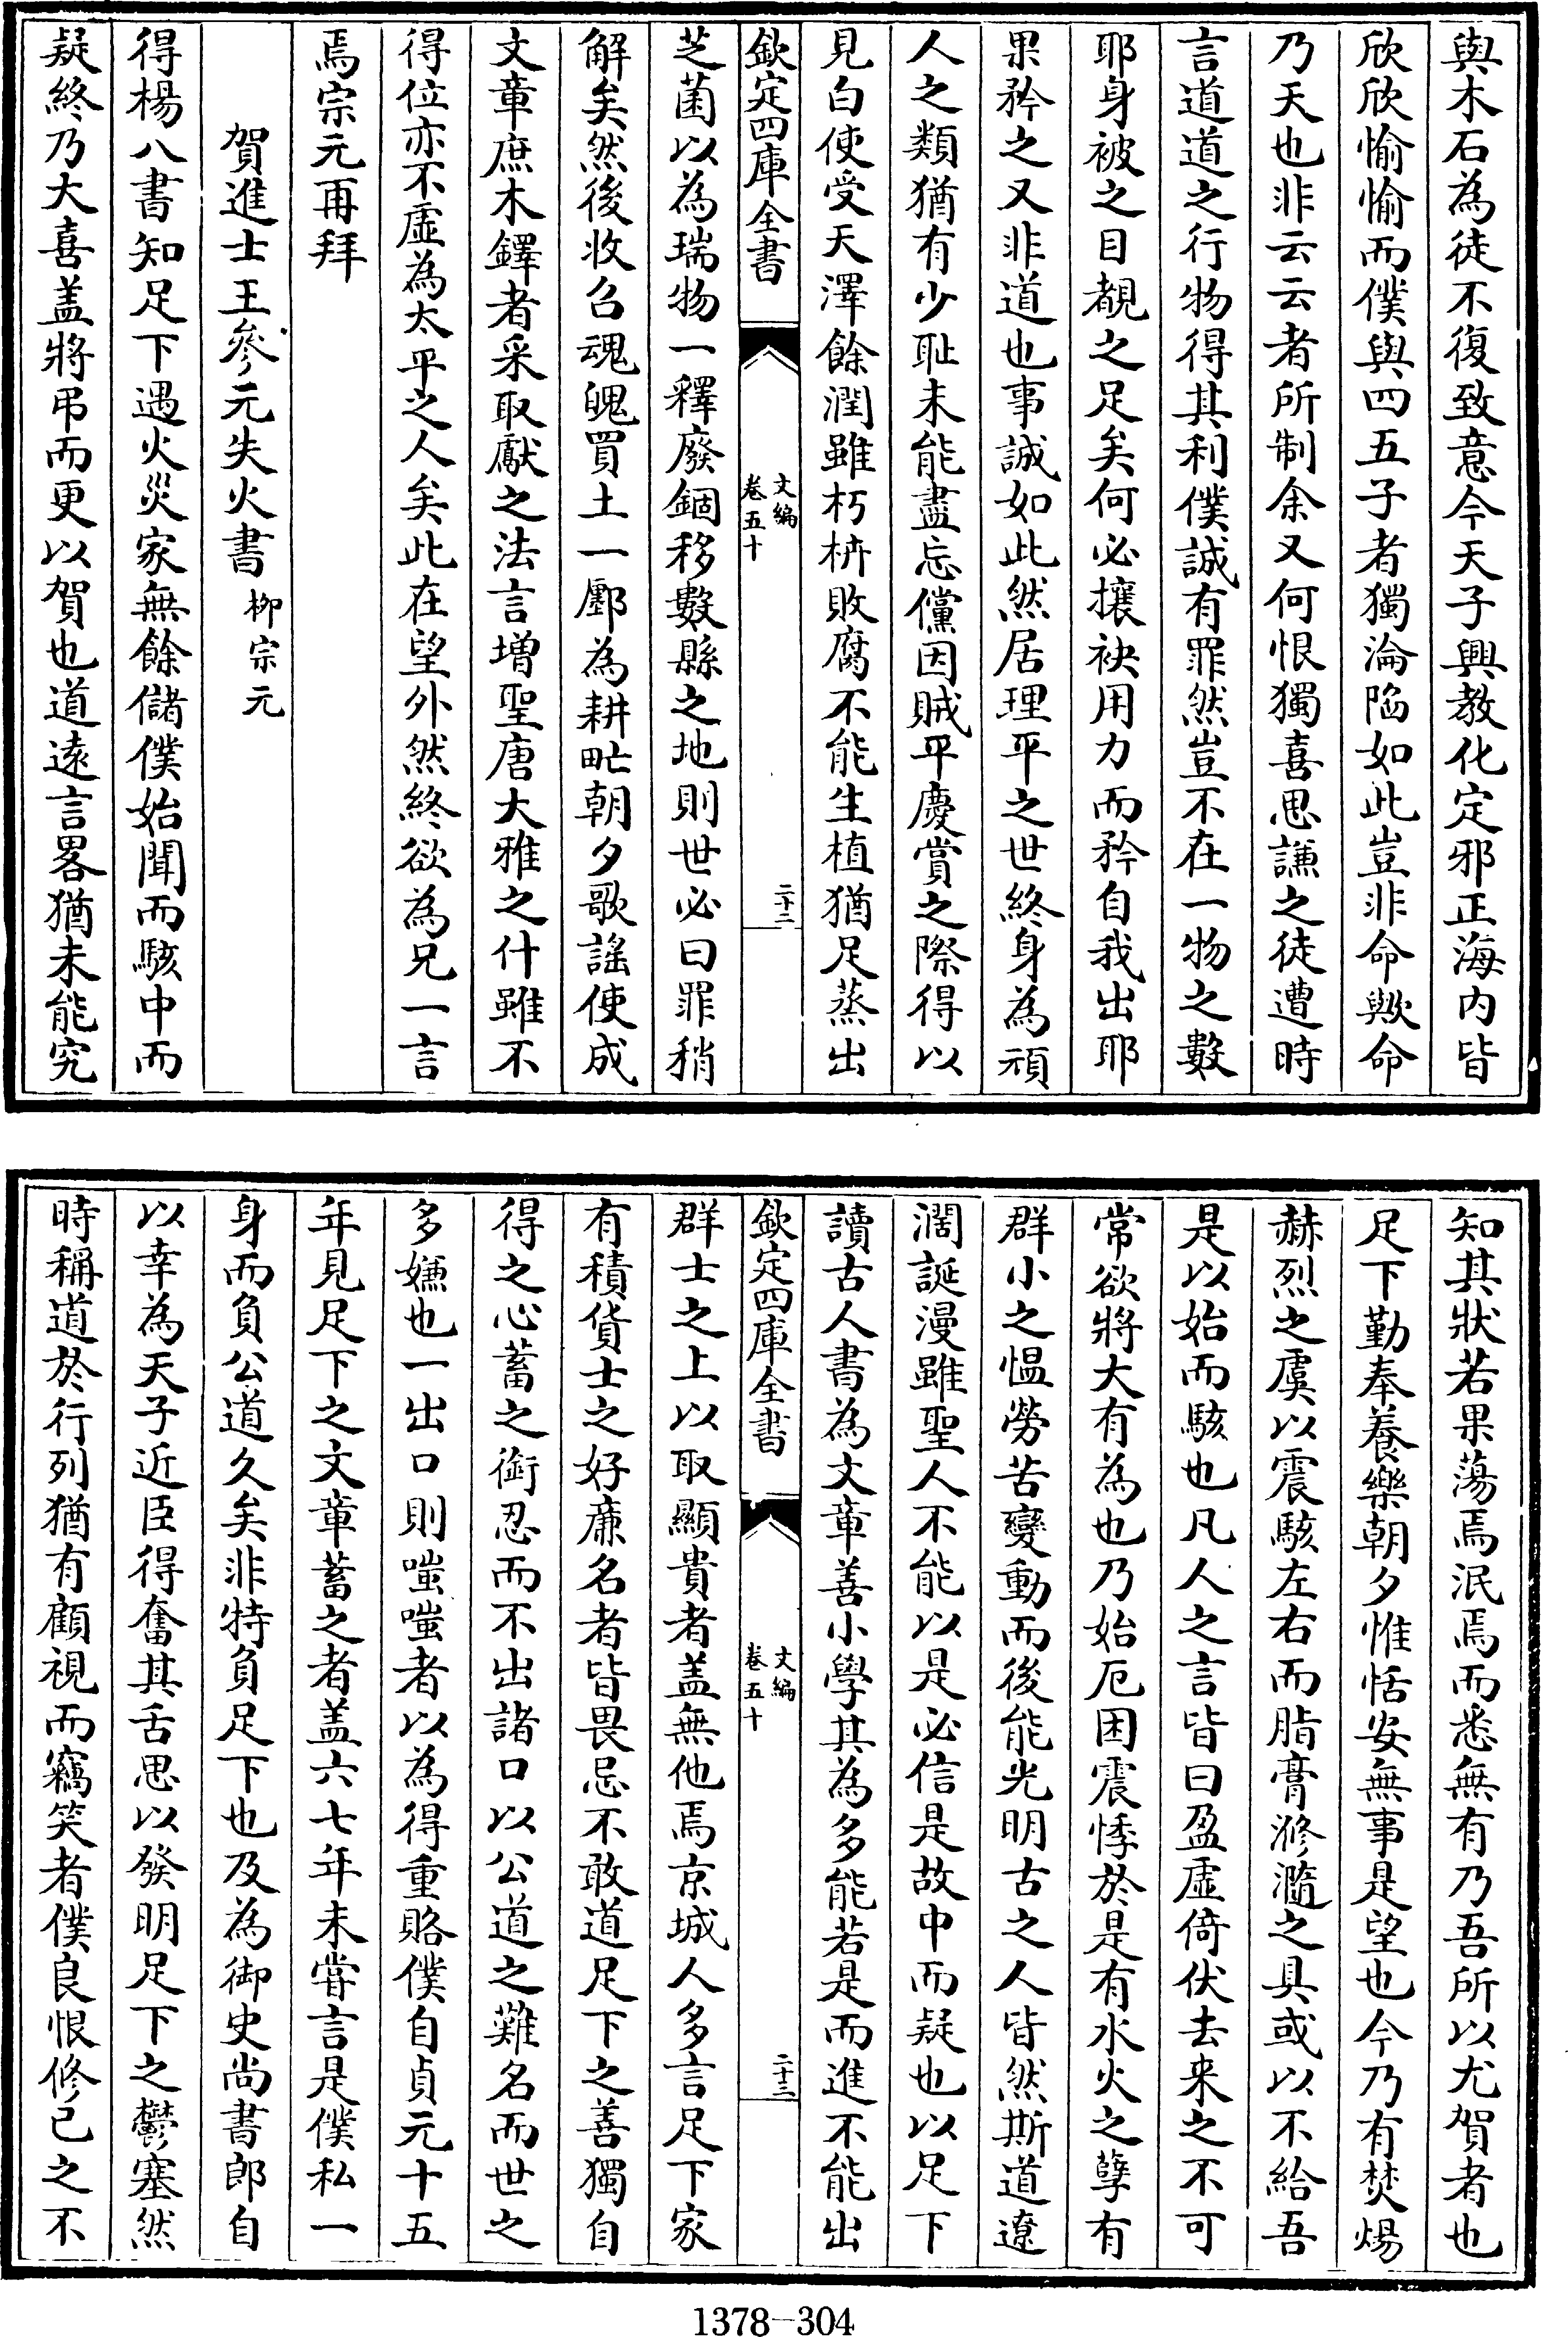 與木石為徒不復致意今天子興教化定邪正海内皆
欣欣愉愉而僕與四五子者獨淪陷如此豈非命歟命
乃天也非云云者所制余又何恨獨喜思謙之徒遭時
言道道之行物得其利僕誠有罪然豈不在一物之數
耶身被之目覩之足矣何必攘袂用力而矜自我出耶
果矜之又非道也事誠如此然居理平之世終身為頑
人之類猶有少恥未能盡忘儻因賊平慶賞之際得以
見白使受天澤餘潤雖朽枿敗腐不能生植猶足蒸出
欽定四庫全書
文編
卷五十
二十二
芝菌以為瑞物一釋廢錮移數縣之地則世必曰罪稍
解矣然後收召魂魄買土一廛為耕甿朝夕歌謡使成
文章庶木鐸者采取獻之法言增聖唐大雅之什雖不
得位亦不虚為太平之人矣此在望外然終欲為兄一言
焉宗元再拜
賀進士王參元失火書 栁宗元
得楊八書知足下遇火災家無餘儲僕始聞而駭中而
疑終乃大喜盖將弔而更以賀也道逺言畧猶未能究
知其狀若果蕩焉泯焉而悉無有乃吾所以尤賀者也
足下勤奉養樂朝夕惟恬安無事是望也今乃有焚煬
赫烈之虞以震駭左右而脂膏滫瀡之具或以不給吾
是以始而駭也凡人之言皆曰盈虚倚伏去來之不可
常欲將大有為也乃始厄困震悸於是有水火之孽有
群小之愠勞苦變動而後能光明古之人皆然斯道遼
濶誕漫雖聖人不能以是必信是故中而疑也以足下
讀古人書為文章善小學其為多能若是而進不能出
欽定四庫全書
文編
卷五十
二十三
群士之上以取顯貴者盖無他焉京城人多言足下家
有積貨士之好亷名者皆畏忌不敢道足下之善獨自
得之心蓄之銜忍而不出諸口以公道之難名而世之
多嫌也一出口則嗤嗤者以為得重賂僕自貞元十五
年見足下之文章蓄之者盖六七年未嘗言是僕私一
身而負公道久矣非特負足下也及為御史尚書郎自
以幸為天子近臣得奮其舌思以發明足下之鬱塞然
時稱道於行列猶有顧視而竊笑者僕良恨修己之不
1378-304